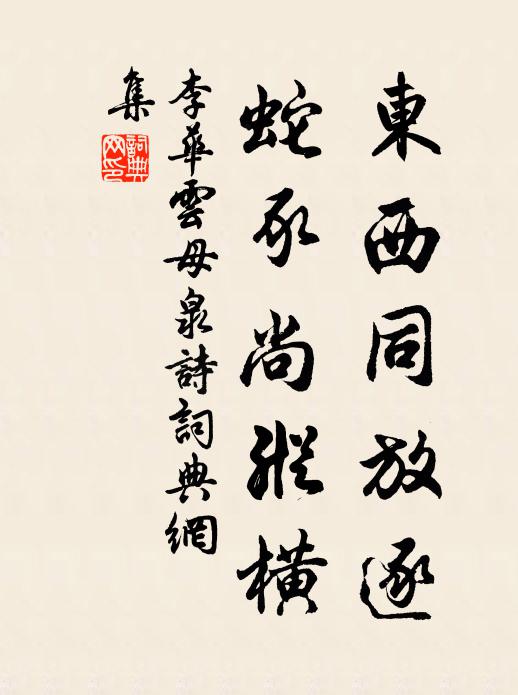 東西同放逐
蛇豕尚縱橫
李華雲母泉詩詞典網
集
詞典網印